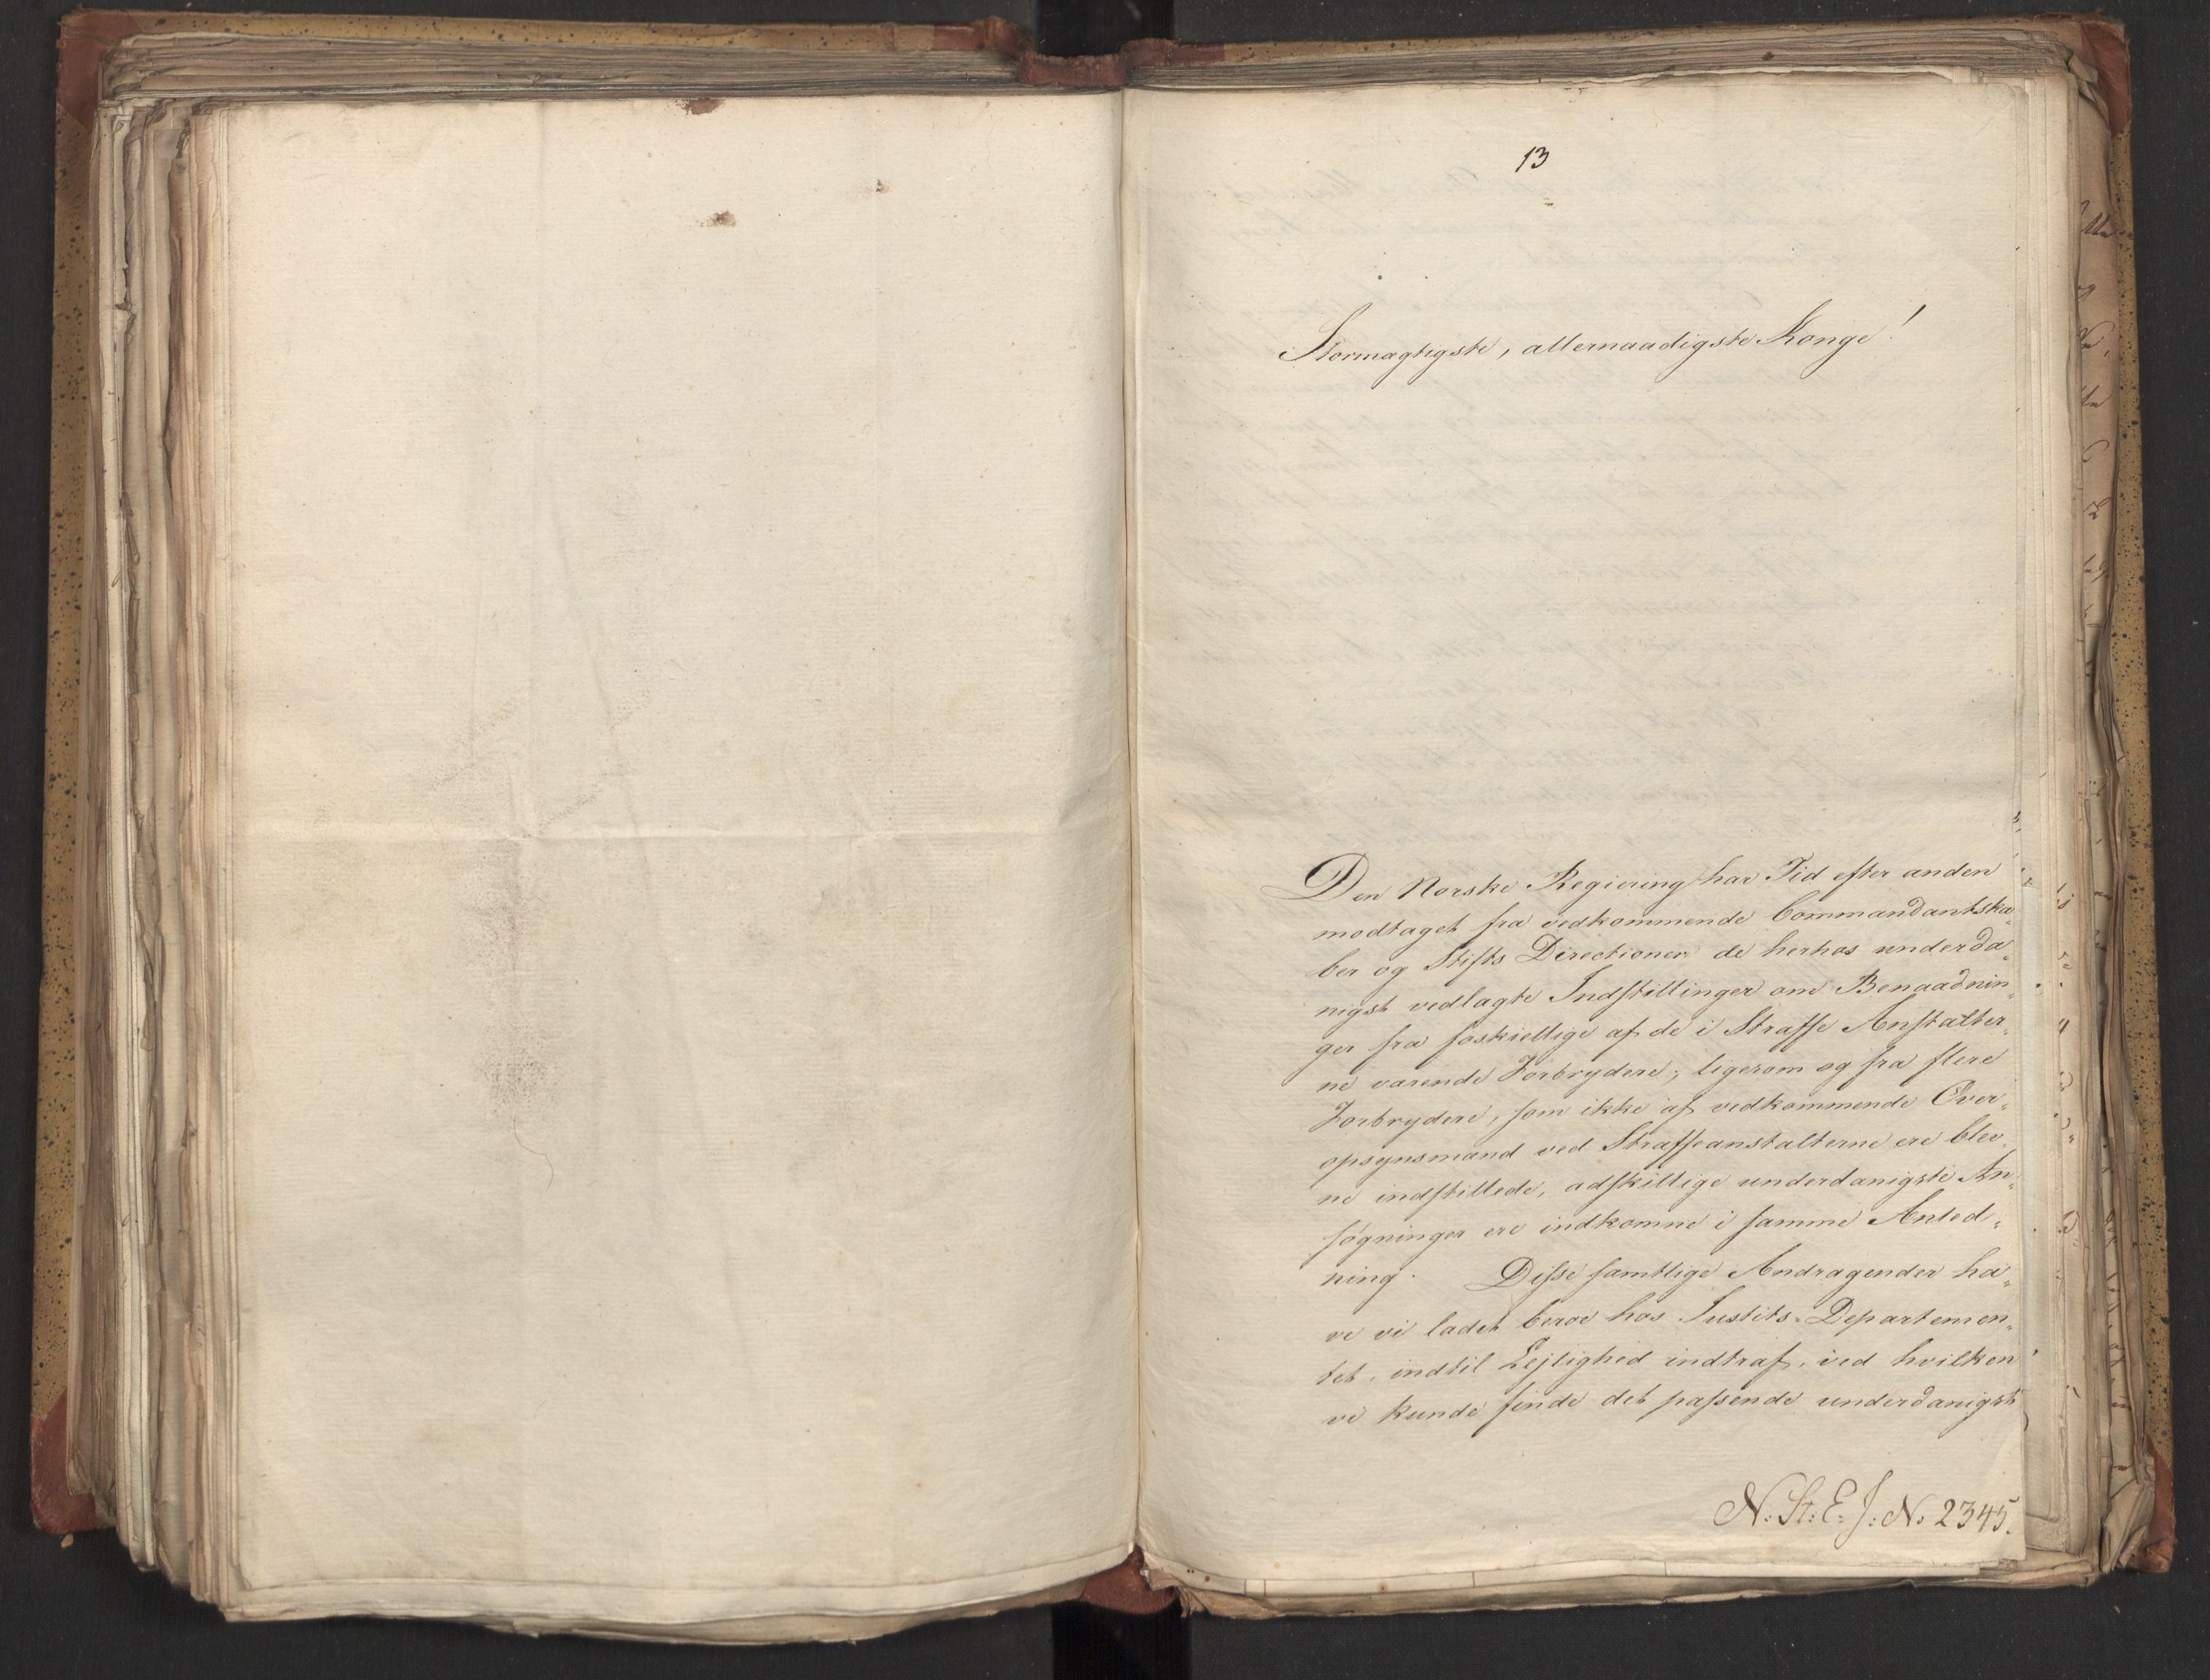 13
Stormægtigste, allernaadigste Konge!
Den Norske Regiering har Tid efter anden
modtaget fra vedkommende Commandantska„
ber og Stifts Directioner de herhos underda„
nigst vedlagte Indstillinger om Benaadnin„
ger fra forskiellige af de i Straffe Anstalter„
ne værende Forbrydere; ligesom og fra flere
Forbrydere, som ikke af vedkommende Over„
opsynsmænd ved Straffeanstalterne ere blev„
ne indstillede, adskillige underdanigste An„
søgninger ere indkomne i samme Anled„
ning. Disse samtlige Andragender ha„
ve vi ladet beroe hos Justits-Departemen„
tet, indtil Lejlighed indtraf, ved hvilken
vi kunde finde det passende underdanigst
N: St: E: J: No 2345.